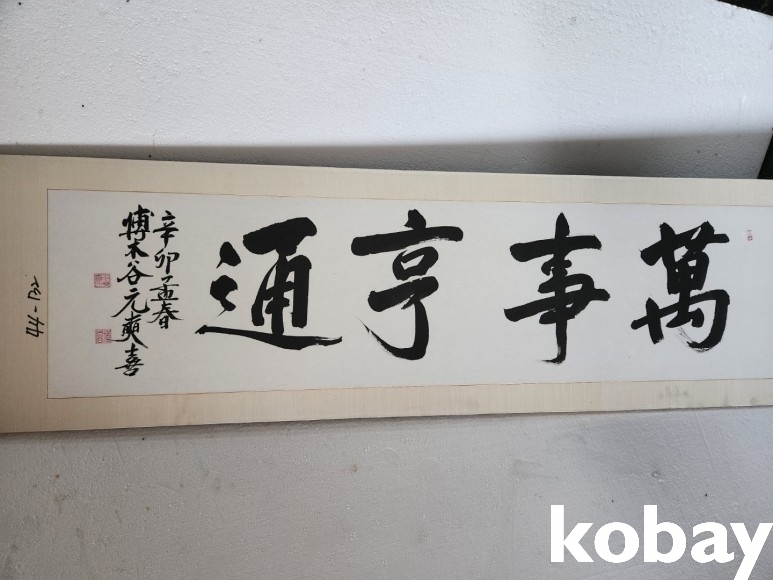 萬事亨通
辛卯孟春
木谷元奭喜
kobay